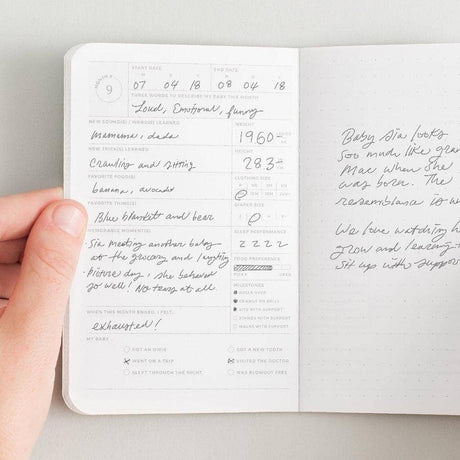 START DATE END DATE
MONTH # 9
07 04 18 08 04 18
THREE WORDS TO DESCRIBE MY BABY THIS MONTH
Loud, Emotional, funny
NEW SOUND(S) / WORD(S) LEARNED
mamama, dada
NEW TRICK(S) LEARNED
Crawling and sitting
FAVORITE FOOD(S)
banana, avocado
FAVORITE THING(S)
Blue blankett and bear
MEMORABLE MOMENT(S)
Sia meeting another baby
at the grocery and laughing
Picture day, she behaved
so well! No tears at all.
WHEN THIS MONTH ENDED I FELT,
exhausted!
MY BABY...
GOT AN OWIE
WENT ON A TRIP
SLEPT THROUGH THE NIGHT
GOT A NEW TOOTH
VISITED THE DOCTOR
HAD BLOWOUT FREE
WEIGHT
1960
HEIGHT
283
CLOTHING SIZE
DIAPER SIZE
SLEEP PERFORMANCE
Z Z Z Z
FOOD PREFERENCE
PICKY OPEN
MILESTONES
ROLLS OVER
CRAWLS ON BELLY
SITS WITH SUPPORT
STANDS WITH SUPPORT
WALKS WITH SUPPORT
Baby Sia looks
soo much like
Mae when she
was born. The
resemblance is
We love watching
grow and
sit up with